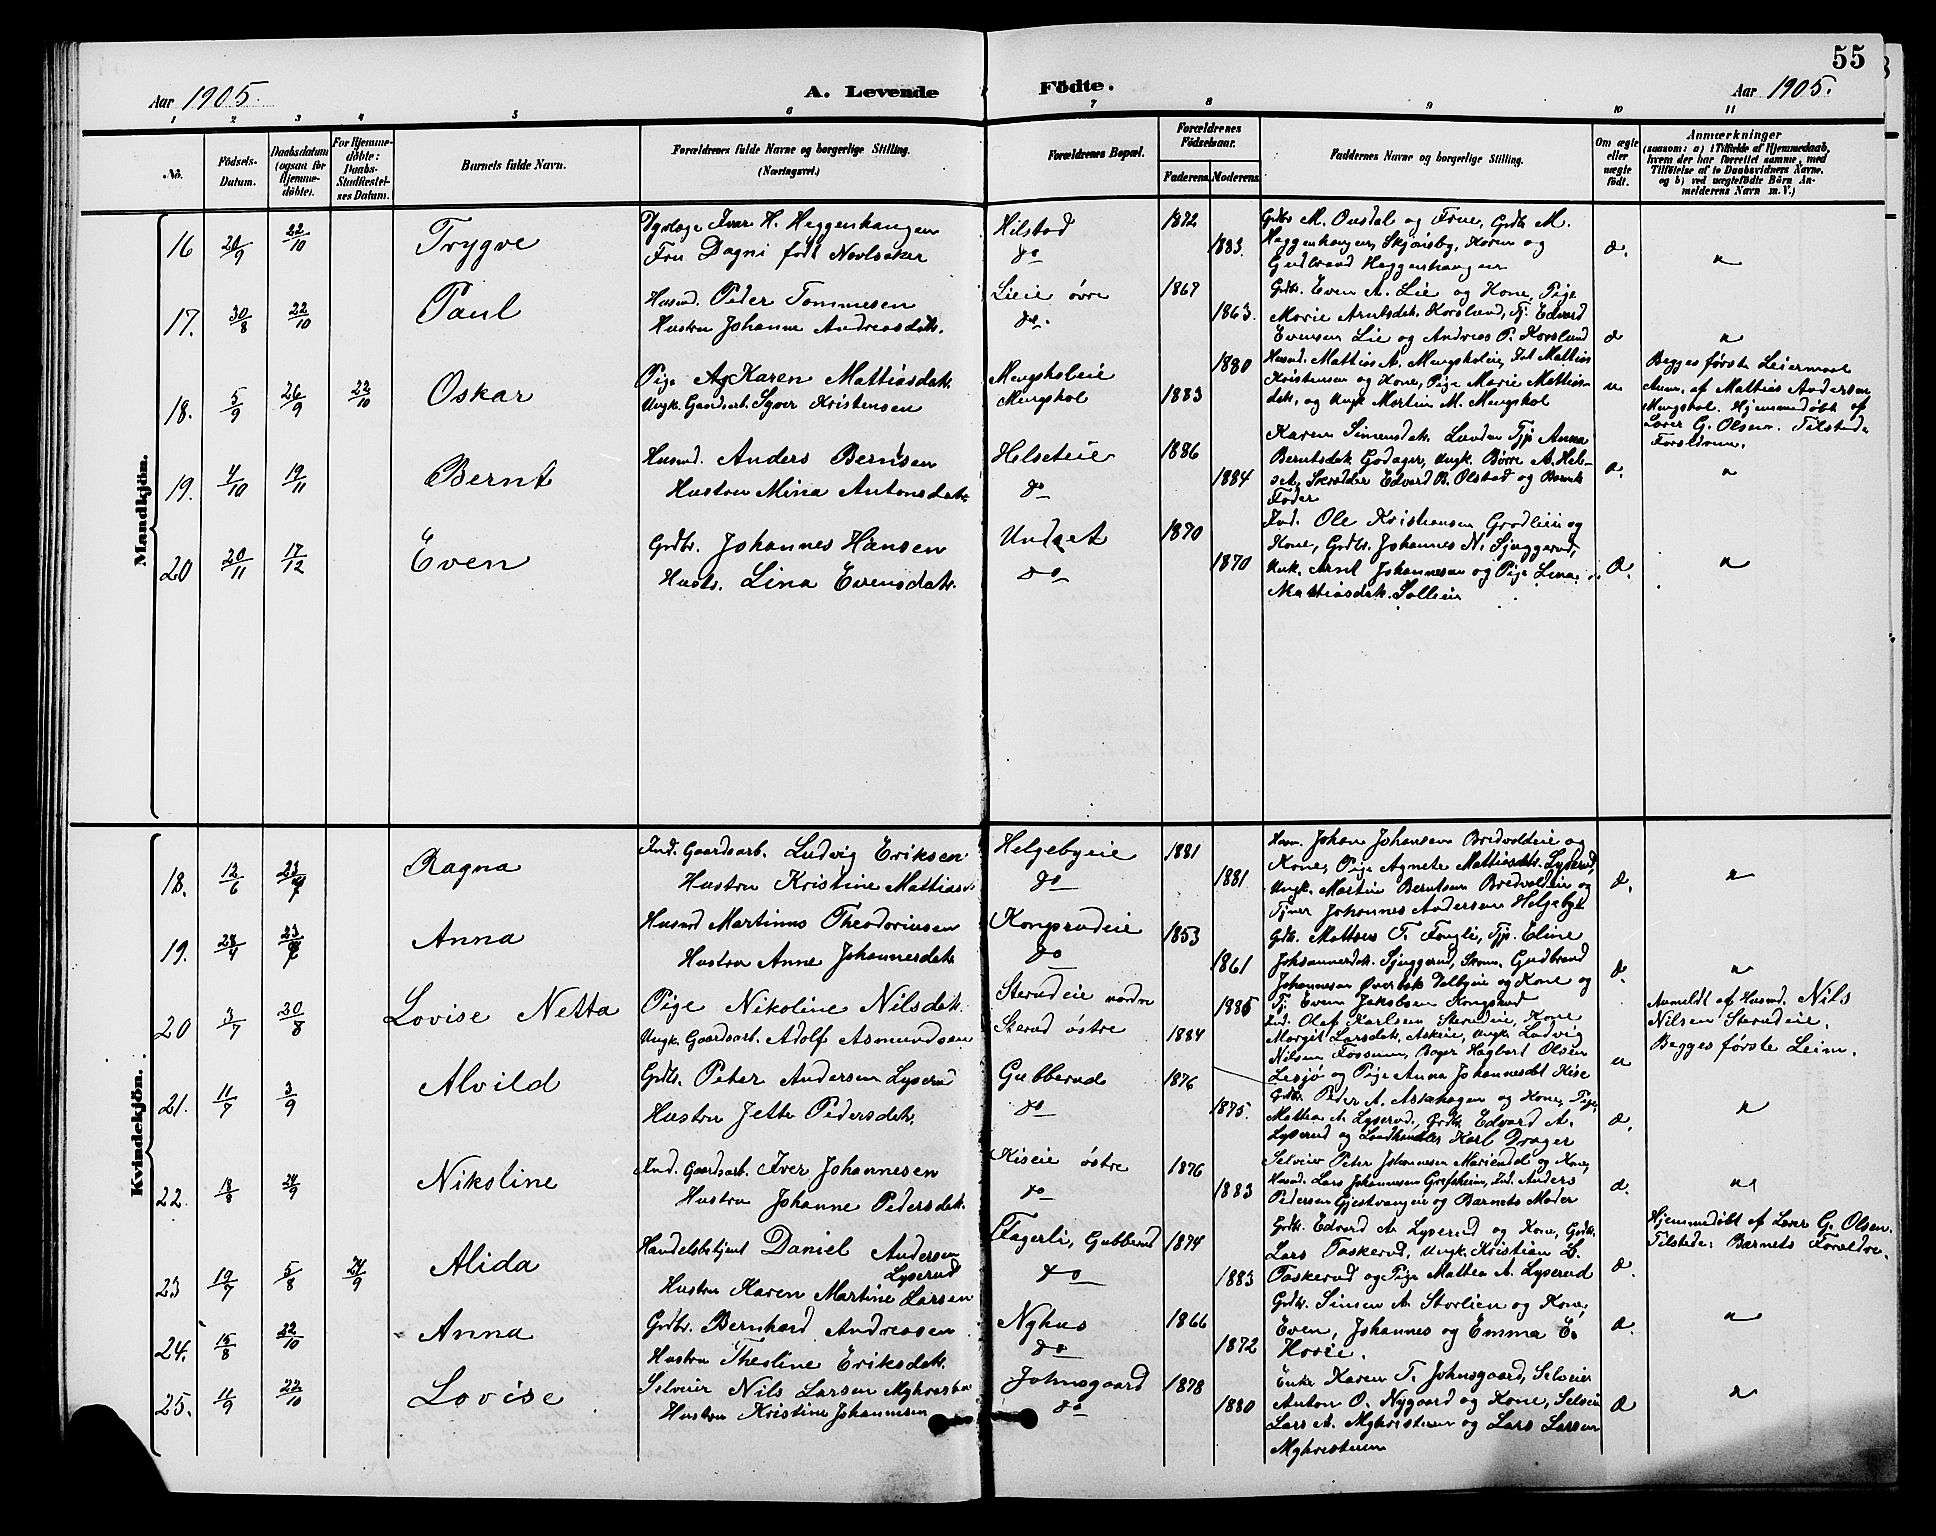 55
Aar 1905. A. Levende Födte. Aar 1905.
1 2 3 4 5 6 7 8 9 10 11
No.
Födsels-Datum.
Daabsdatum (ogsaa for Hjemme-döbte).
For Hjemme-döbte: Daabs-Stadfæstel-ses Datum.
Barnets fulde Navn.
Forældrenes fulde Navne og borgerlige Stilling.
(Næringsvei.)
Forældrenes Bopæl.
Forældrenes Födselsaar.
Faderens. Moderens.
Faddernes Navne og borgerlige Stilling.
Om ægte eller uægte födt.
Anmærkninger
(saasom: a) i Tilfælde af Hjemmedaab,
hvem der har forrettet samme, med
Tilföielse af to Daabsvidners Navne,
og b) ved uægtefödte Börn An-
melderens Navn m. V.)
Mandkjön.
16 20/9 22/10 Trygve
Iver H. Heggenhaugen
Fru Dagni født
Hilstad
do
1872
1883.
Grdbr M. Onsdal og Frue, Grdb. M.
Heggenhaugen, Skjønsby, Karen og
Gudbrand Heggenhaugen
æ.
"
17. 30/8 22/10 Paul
Husmd. Peder Tommesen
Hustru Johanne Andreasdat.
Lieie øvre
do.
1867
1863.
Grdb. Even A. Lie og Kone, Pige
Marie Arntsdat. Korslund, Tj. Edvard
Evensen Lie og Andreas P. Korslund
æ
"
18. 5/9 26/9 22/10 Oskar
Pige Karen Mattiasdat.
Ungk. Gaardsarb. Syver Kristensen
Mengsholeie
Mengshol
1880
1883
Husmd. Mattias A. Mengsholeie, Ind. Mattias
Kristensen og Kone, Pige Marie Mattias-
dat. og Ungk Martin M. Mengshol
u
Begges første Leiermaal
Anm. af Mattias Andersen
Mengshol. Hjemmedøbt af
Lærer G. Olsen. Tilstede
Forældrene.
19. 4/10 19/11 Bernt
Husmd. Anders Berntsen
Hustru Mina Antonsdat.
Helseteie
do
1886
1884
Karen Simensdat. Lunden Tjp Anna
Berntsdat. Godager, Ungk. Børre A. Hel-
set, Skrædder Edvard B. Olstad og Barnets
Fader
æ.
"
20 20/11 17/12 Even
Grdbr. Johannes Hansen
Hustr. Lina Evensdat.
Undset
do
1870
1870
Ind. Ole Kristiansen Grodleie og
Kone, Grdb. Johannes N. Sjuggerud,
Unk. Arnt Johannesen og Pige Lina
Mattiasdat. Solleien
æ.
"
Kvindekjön.
18. 12/6 23/7 Ragna
Ind. Gaardsarb. Ludvig Eriksen
Hustru Kristine Mattias
Helgebyeie
do
1881
1881.
Husm. Johan Johansen Bredvoldeie og
Kone, Pige Agnete Mattiasdat. Lyserud,
Ungk. Martin Berntsen Bredvoldeie og
Tjner Johannes Andersen Helgeby
æ.
"
19. 28/4 23/7 Anna
Husmd Martinus Theodoriusen
Hustru Anne Johannesdat.
Kongsrudeie
do
1853
1861
Grdb. Matteus T. Fougli, Tjp. Eline
Johannesdat. Sjuggerud, Skom. Gudbrand
Johannesen Øverbak Delbyeie og Kone og
Tj. Even Jakobsen Kongsrud
æ
"
20 3/7 20/8 Lovise Netta
Pige Nikoline Nilsdat.
Ungk. Gaardsarb. Adolf Asmundsen
Sterudeie nordre
Sterud østre
1885
1884
Ind. Olaf Karlsen Sterudeie, Kone
Margit Larsdat. Askeie, Ungk. Ludvig
Nilsen Fossum, Bager Hagbart Olsen
Lesjø og Pige Anna Johannesdat Kise
u
Anmeldt af Husmd. Nils
Nilsen Sterudeie.
Begges første Leierm.
21. 11/7 3/9 Alvild
Grdb. Peter Andersen Lyserud
Hustru Jette Pedersdat.
Gubberud
do
1876
1875.
Grdb Peder A. Askehagen og Kone, Pige
Mattea A. Lyserud, Grdb. Edvard A.
Lyserud og Landhandler Karl Drager
æ.
"
22. 18/8 24/9 Nikoline
Ind. Gaardsarb. Iver Johannesen
Hustru Johanne Pedersdat.
Kiseie østre
do
1876
1883
Selveier Peter Johannesen Mariendal og Kone,
Husmd. Lars Johannesen Grefsheim, Ind. Anders
Pedersen Gjestvangeie og Barnets Moder
æ.
"
23 19/7 5/8 24/9 Alida
Handelsbetjent Daniel Andersen
Lyserud
Hustru Karen Martine Larsen
Fagerli, Gubberud
do
1874
1883
Grdb. Edvard A. Lyserud og Kone, Grdb.
Lars Taskerud, Ungk. Kristian L.
Taskerud og Pige Mattea A. Lyserud
æ.
Hjemmedøbt af Lærer G. Olsen.
Tilstede: Barnets Forældre.
24. 15/8 22/10 Anna
Grdbr. Bernhard Andreasen
Hustru Theoline Eriksdat.
Nyhus
do
1866
1872
Grdb. Simen A. Storlien og Kone,
Even, Johannes og Emma E.
Hovie.
æ.
"
25. 11/9 22/10 Lovise
Selveier Nils Larsen
Hustru Kristine Johannesen
Johnsgaard
do
1878
1880
Enke Karen T. Johnsgaard, Selveier
Anton O. Nygaard og Kone, Selveier
Lars A. Myhrsteren og Lars Larsen
Myhrsteren
æ
"